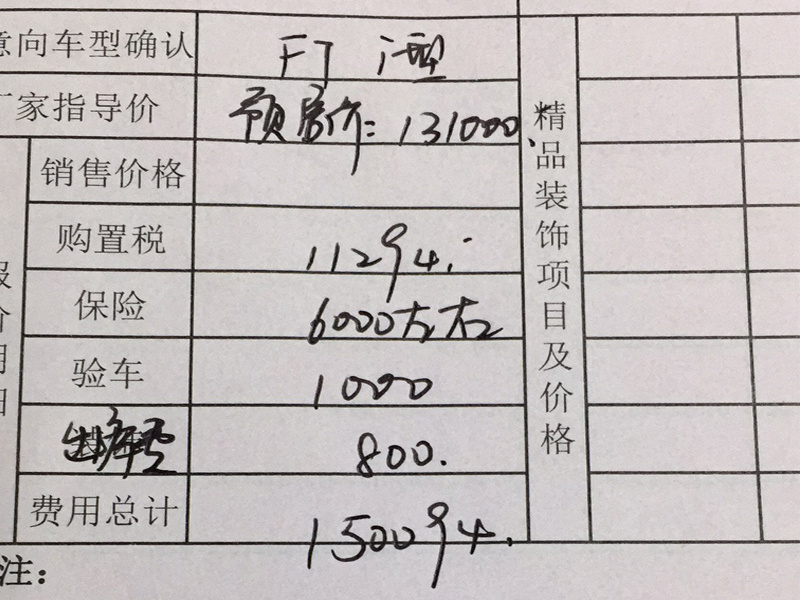 意向车型确认 FT i型
厂家指导价 预售价：131000
销售价格
购置税 11294.
保险 6000左右
验车 1000
出库费 800.
费用总计 150094.
报价明细
精品装饰项目及价格
注：